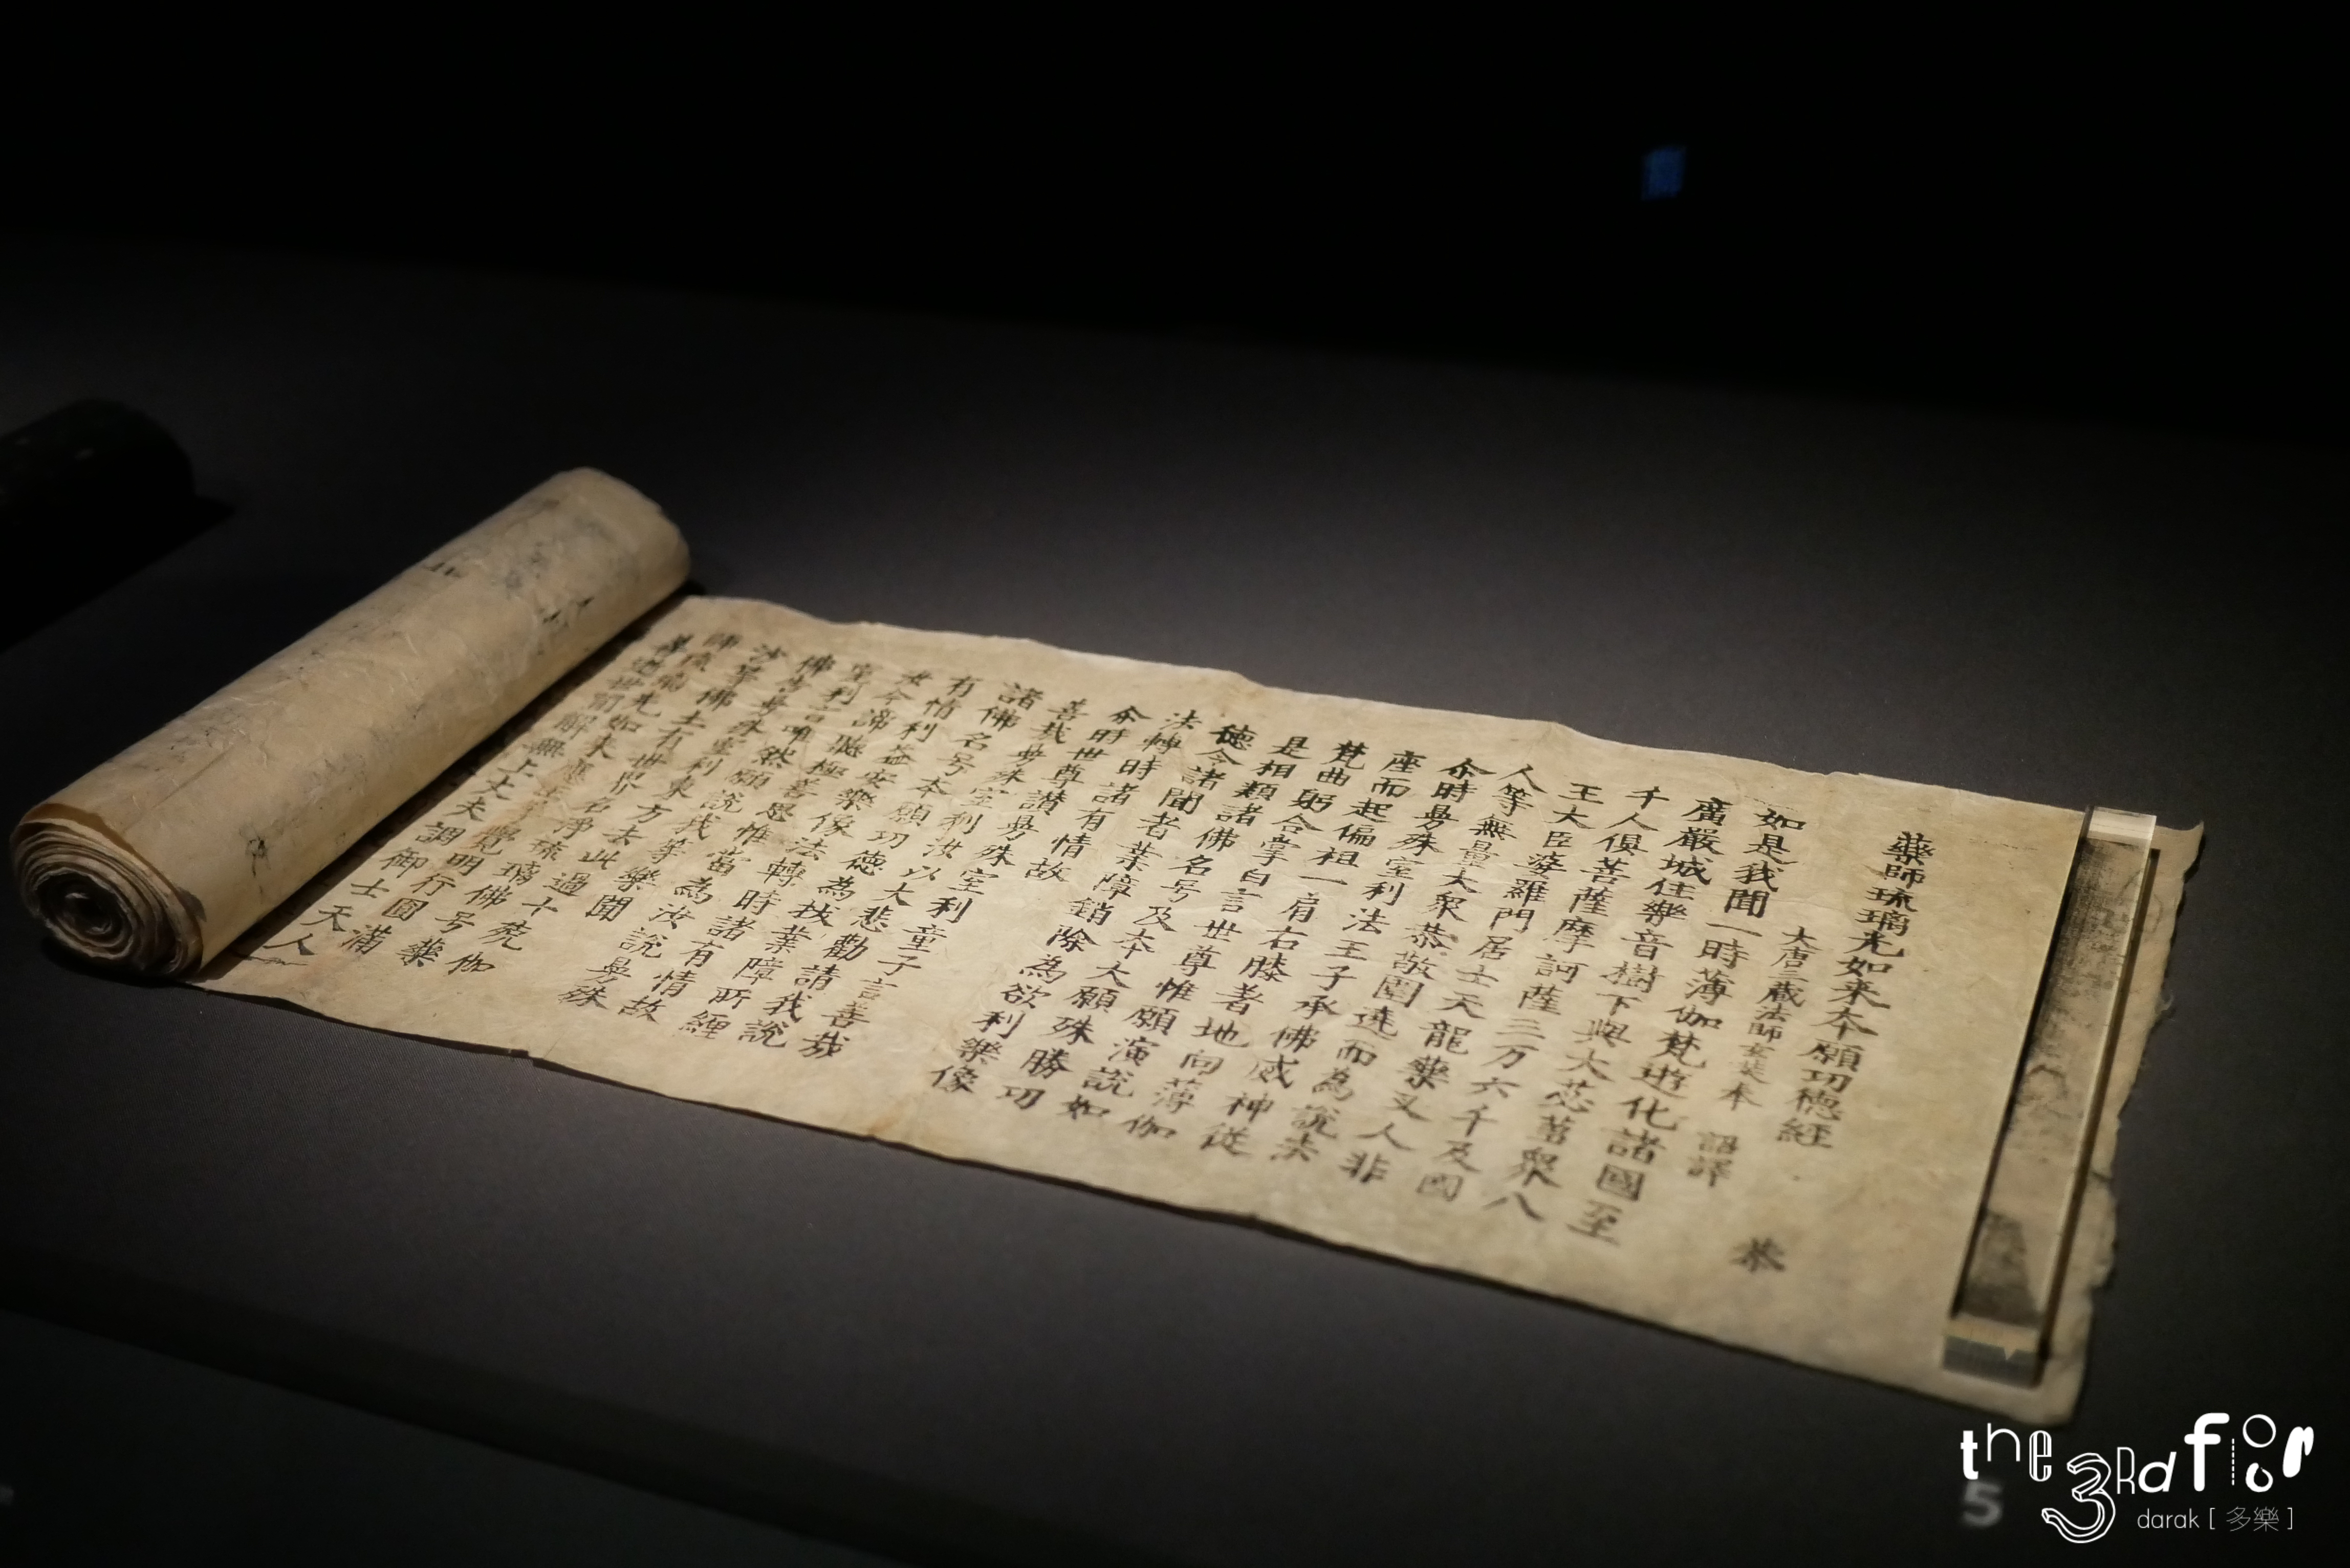 藥師琉璃光如来本願功德經 恭
大唐三藏法師玄奘本 詔譯
如是我聞一時薄伽梵遊化諸國至
廣嚴城住樂音樹下與大苾蒭衆八
千人俱菩薩摩訶薩三万六千及國
王大臣婆羅門居士天龍藥叉人非
人等無量大衆恭敬圍遶而為說法
尒時曼殊室利法王子承佛威神從
座而起偏袒一肩右膝著地向薄伽
梵曲躬合掌白言世尊惟願演說如
是相類諸佛名号及本大願殊勝功
德令諸聞者業障銷除為欲利樂像
法轉時諸有情故
尒時世尊讃曼殊室利童子言善哉
善哉曼殊室利汝以大悲勸請我說
諸佛名号本願功德為拔業障所纏
有情利益安樂像法轉時諸有情故
汝今諦聽極善思惟當為汝說曼殊
室利言唯然願說我等樂聞
佛告曼殊室利東方去此過十殑伽
沙等佛土有世界名淨琉璃佛号藥
師琉璃光如来應正等覺明行圓滿
善逝世間解無上丈夫調御士天人
5
the 3Rd floor
darak [ 多樂 ]